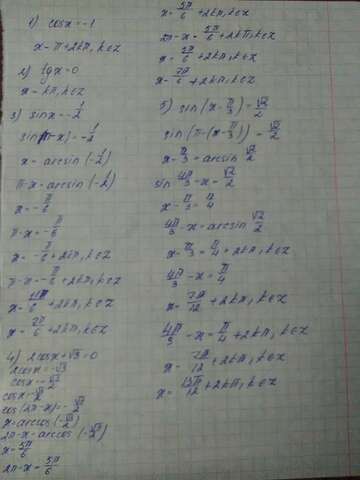 1) cosx=-1
x=π+2kπ, k∈Z
2) tgx=0
x=kπ, k∈Z
3) sinx=-1/2
sin(π-x)=-1/2
x=arcsin(-1/2)
π-x=arcsin(-1/2)
x=-π/6
π-x=-π/6
x=-π/6+2kπ, k∈Z
π-x=-π/6+2kπ, k∈Z
x=11π/6+2kπ, k∈Z
x=7π/6+2kπ, k∈Z
4) 2cosx+√3=0
2cosx=-√3
cosx=-√3/2
cosx=-√3/2
cos(2π-x)=-√3/2
x=arccos(-√3/2)
2π-x=arccos(-√3/2)
x=5π/6
2π-x=5π/6
x=5π/6+2kπ, k∈Z
2π-x=5π/6+2kπ, k∈Z
x=5π/6+2kπ, k∈Z
x=7π/6+2kπ, k∈Z
5) sin(x-π/3)=√2/2
sin(π-(x-π/3))=√2/2
x-π/3=arcsin √2/2
sin 4π/3-x=√2/2
x-π/3=π/4
4π/3-x=arcsin √2/2
x-π/3=π/4+2kπ, k∈Z
4π/3-x=π/4
x=7π/12+2kπ, k∈Z
4π/3-x=π/4+2kπ, k∈Z
x=7π/12+2kπ, k∈Z
x=13π/12+2kπ, k∈Z